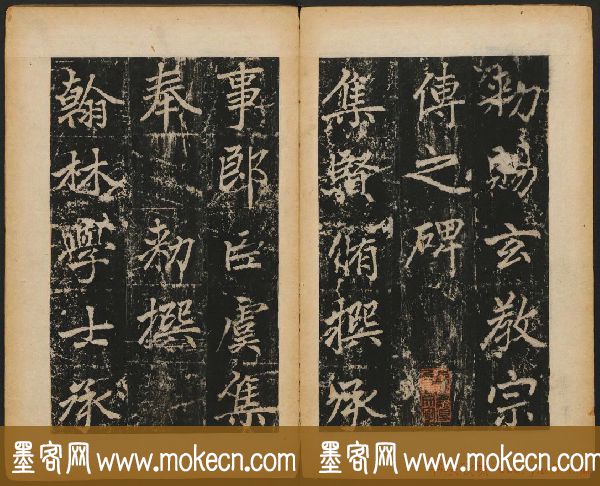 勑賜玄教宗
傳之碑
集賢脩撰承
事郎臣虞集
奉 勑撰
翰林學士承
墨客网 www.mokecn.com
墨客网 www.mokecn.com